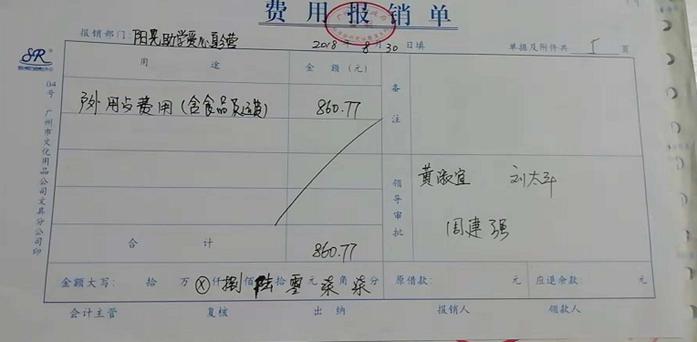 费用报销单
报销部门：阳晃助学爱心夏令营 2018年8月30日填 单据及附件共 1 页
用途 金额（元） 备注
户外用品费用(含食品及运费) 860.77
合计 860.77
领导审批 黄淑宜 刘太平
周建强
金额大写： 拾 万 ⊗ 仟 捌 佰 陆 拾 零 元 柒 角 柒 分 原借款： 元 应退余款： 元
会计主管 复核 出纳 报销人 领款人
SR
04号 广州市文化用品公司文具分公司印